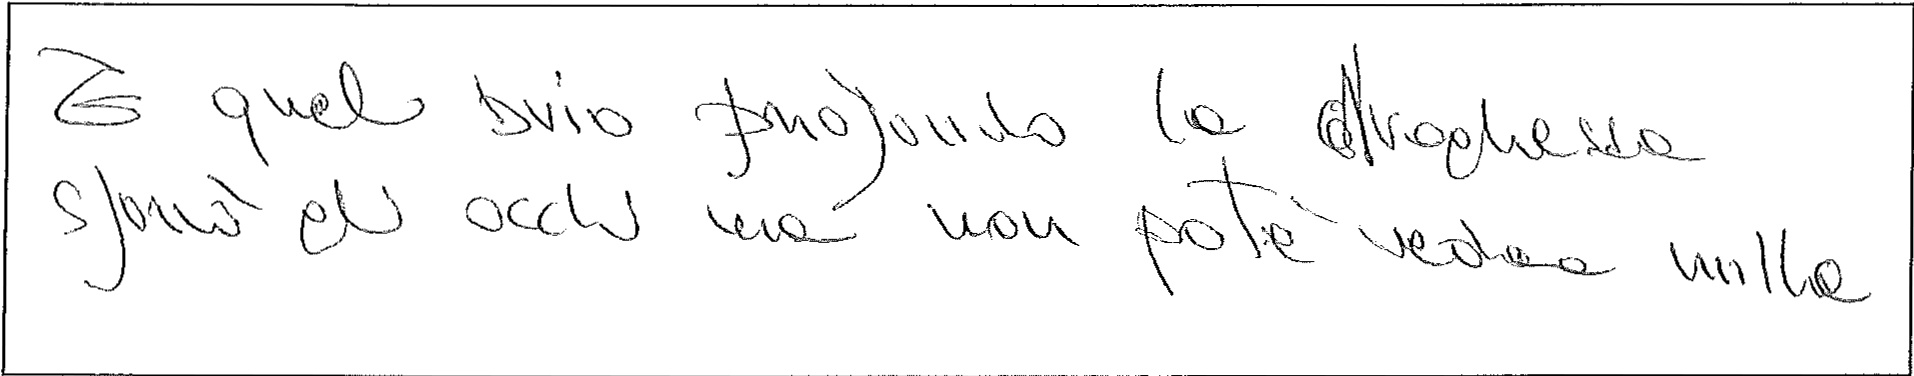 E quel buio profondo la draghessa
sforzò gli occhi ma non potè vedere nulla